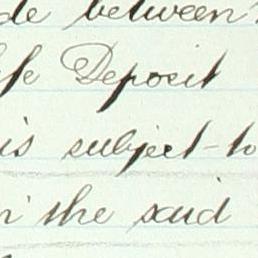 de between
fe Deposit
is subject-to
the said